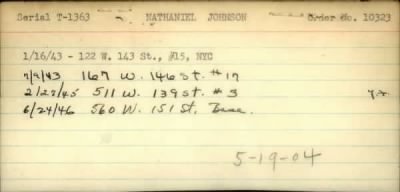 Serial T-1363 NATHANIEL JOHNSON Order No. 10323
1/16/43 - 122 W. 143 St., #15, NYC
7/9/43 167 W. 146 St. #17
2/27/45 511 W. 139 St. #3
6/24/46 560 W. 151 St, Base.
5-19-04